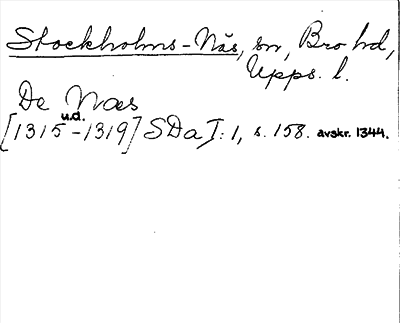 Stockholms-Näs, sn, Bro hd,
Upps. l.
De Næs
u.d.
[1315-1319] SDa I: 1, s. 158. avskr. 1344.